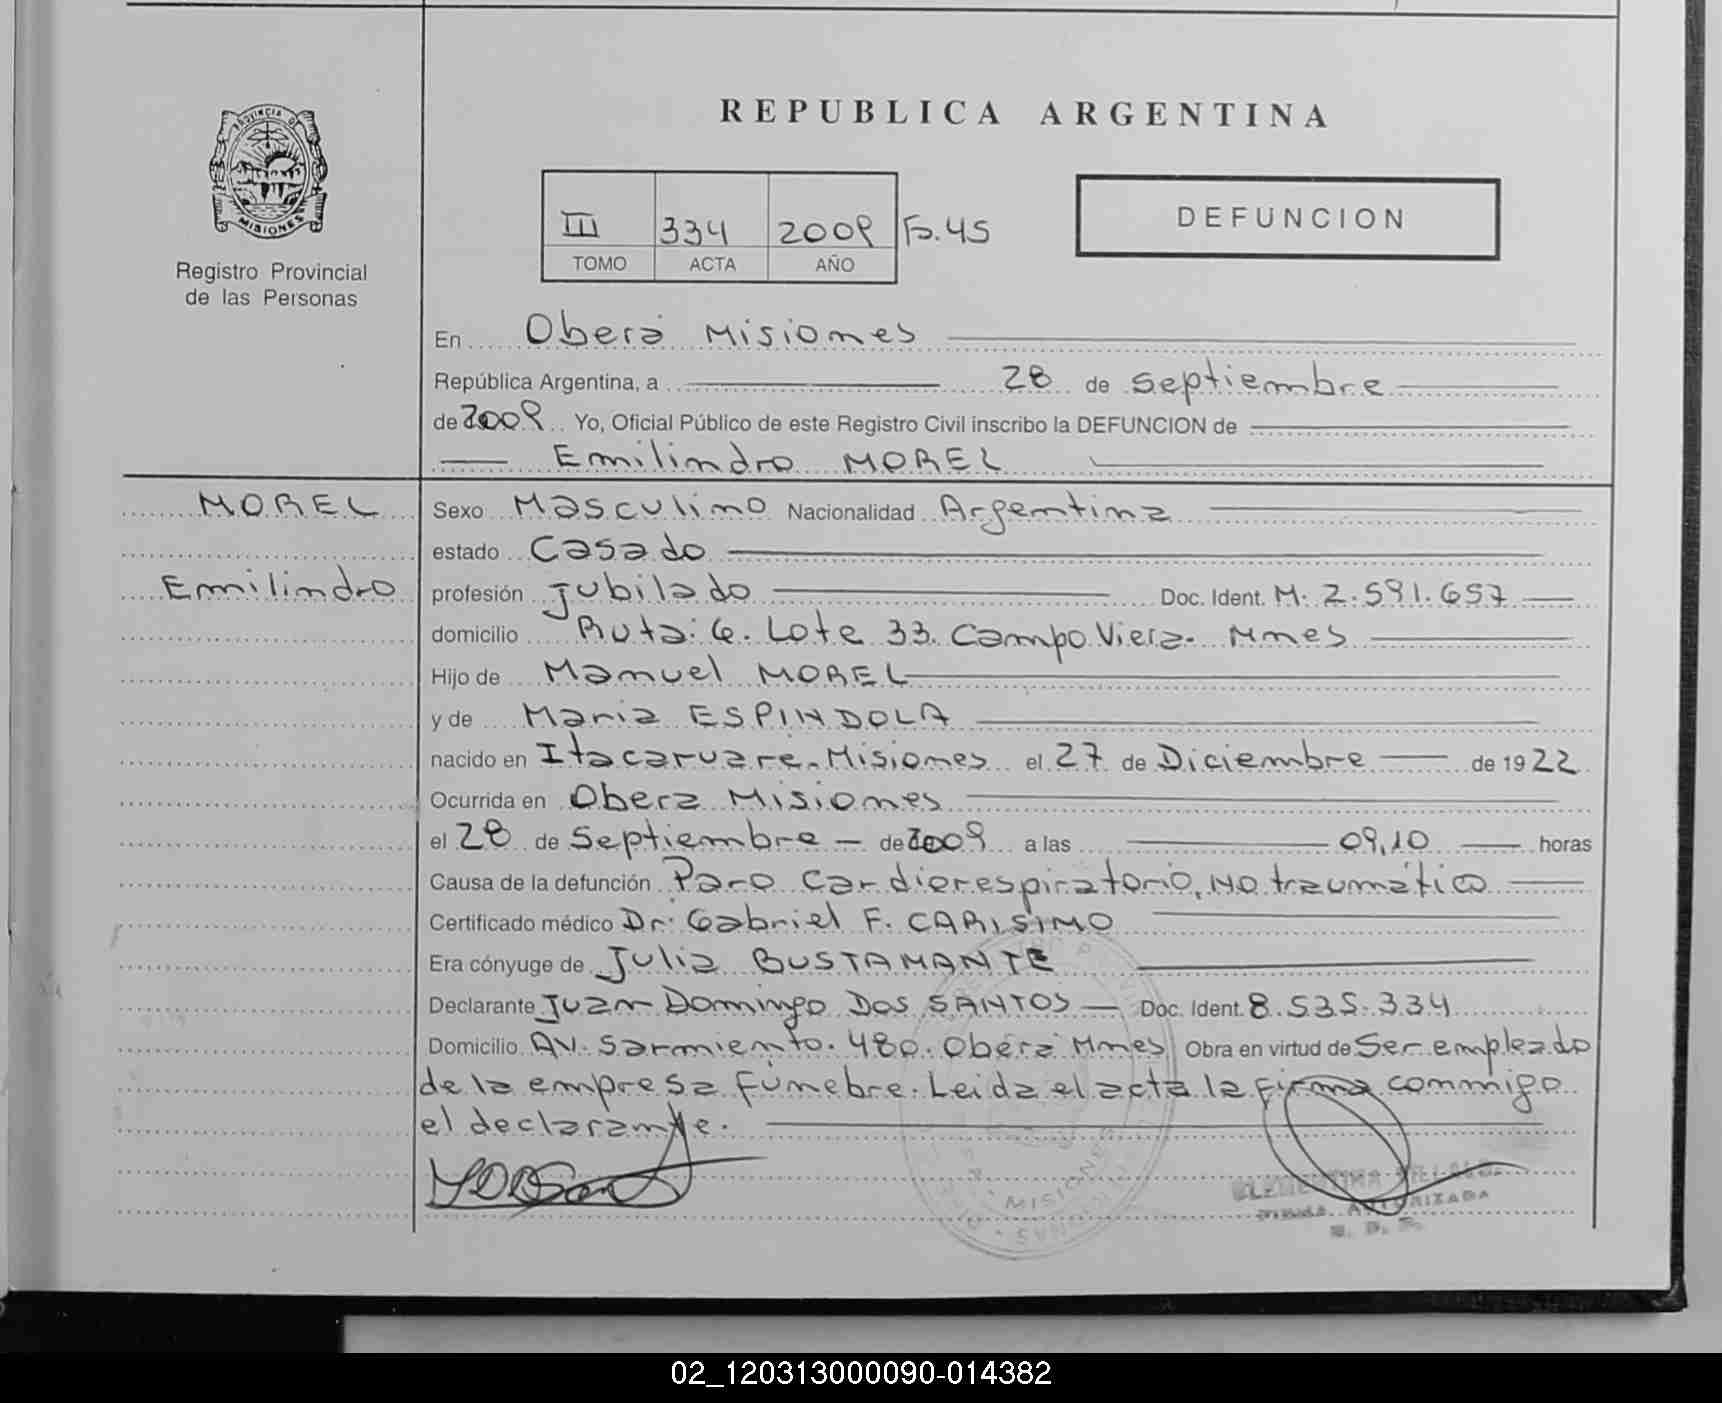 PROVINCIA DE
MISIONES
Registro Provincial
de las Personas
REPUBLICA ARGENTINA
III 334 2009 Fo. 45
TOMO ACTA AÑO
DEFUNCION
En Oberá Misiones
República Argentina, a 28 de septiembre
de 2009 Yo, Oficial Público de este Registro Civil inscribo la DEFUNCION de
Emilindro MOREL
MOREL
Emilindro
Sexo Masculino Nacionalidad Argentina
estado Casado
profesión Jubilado Doc. Ident. M. 2.591.657
domicilio Ruta: 6. Lote 33. Campo Viera. Mnes
Hijo de Manuel MOREL
y de Maria ESPINDOLA
nacido en Itacaruare. Misiones el 27 de Diciembre de 1922
Ocurrida en Obera Misiones
el 28 de Septiembre de 2009 a las 09,10 horas
Causa de la defunción Paro cardiorespiratorio, no traumático
Certificado médico Dr. Gabriel F. CARISIMO
Era cónyuge de Julia BUSTAMANTE
Declarante Juan Domingo Dos SANTOS Doc. Ident. 8.535.334
Domicilio AV. Sarmiento. 480. Oberá Mnes Obra en virtud de Ser empleado
de la empresa fúnebre. Leida el acta la firma conmigo
el declarante.
MISIONES
02_120313000090-014382